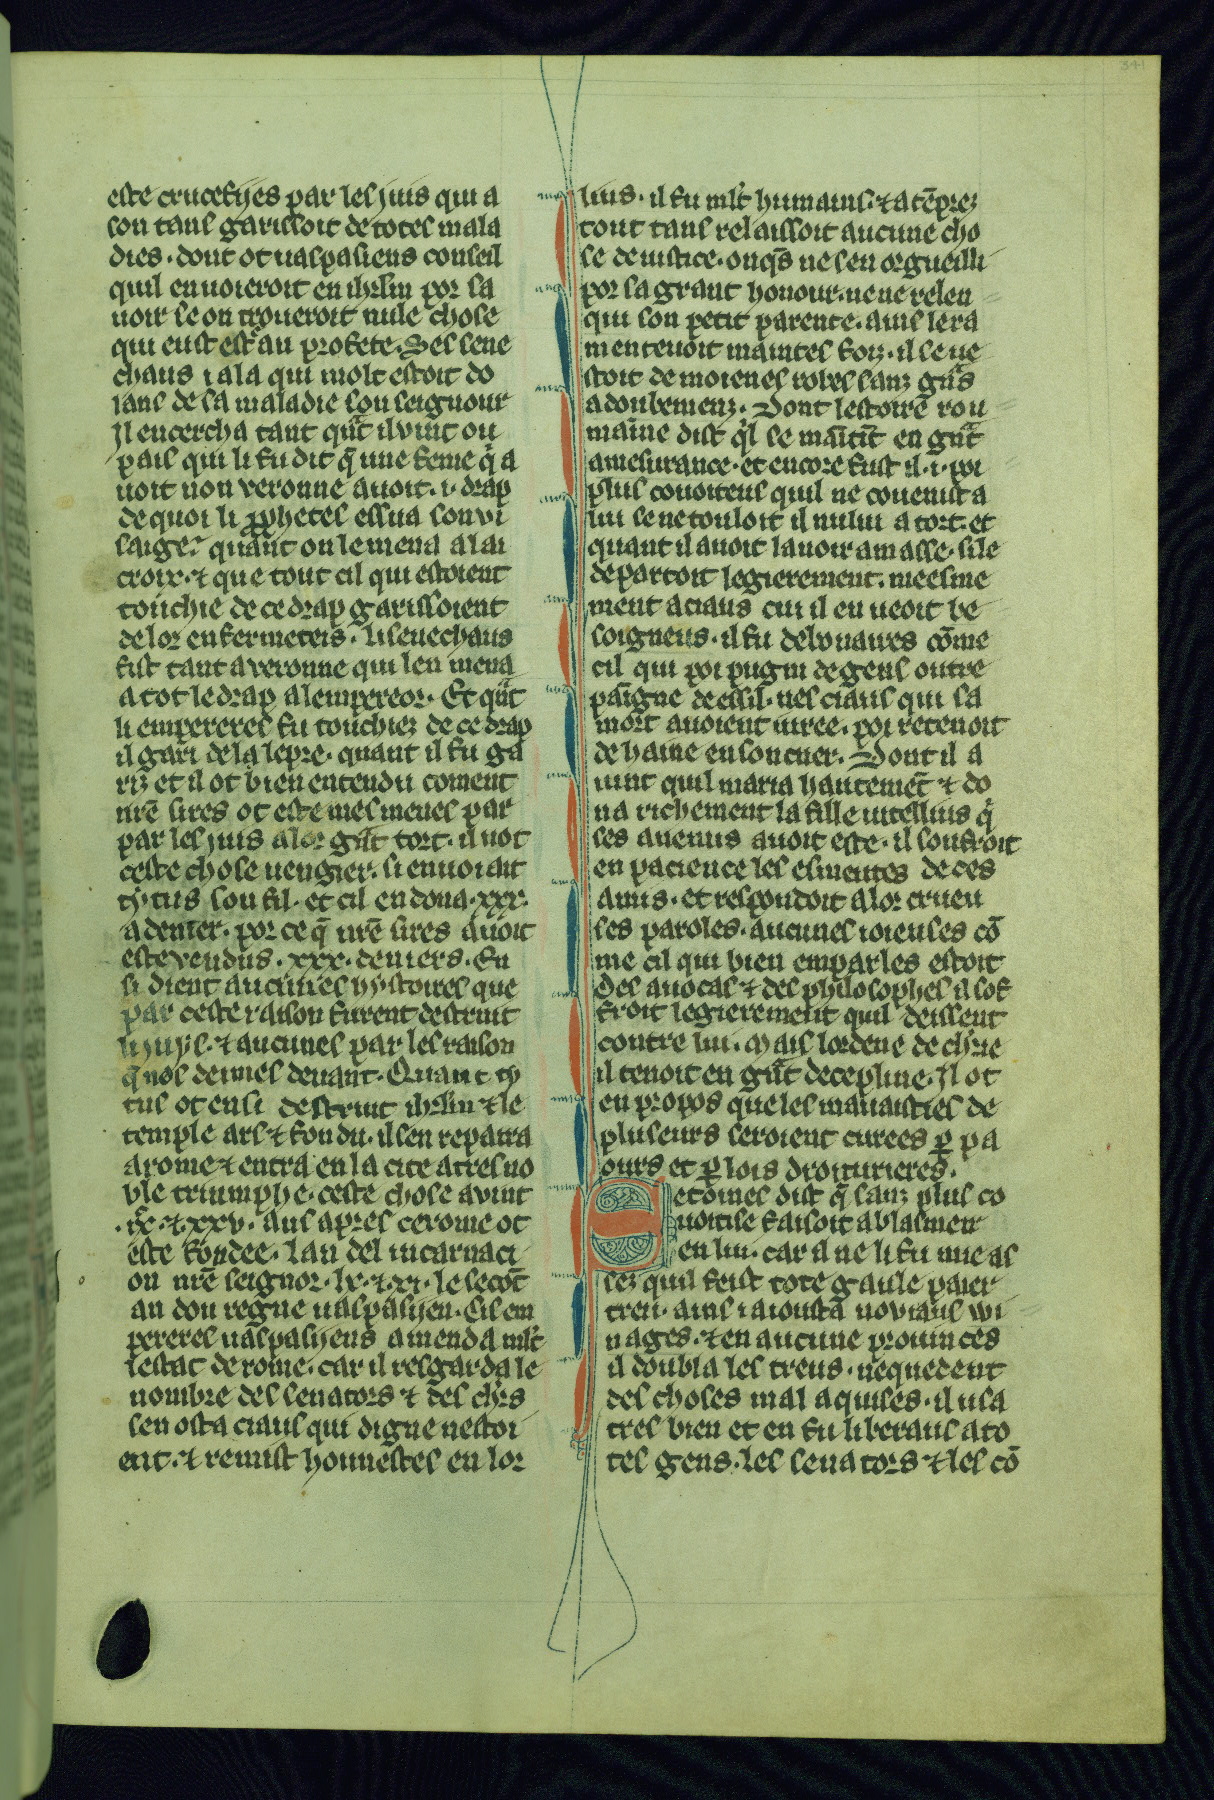 341
este crucefijes par les juis qui a
son tans garissoit de totes mala
dies. dont ot uaspasiens conseil
quil enuoieroit en ihrlm por sa
uoir se on troueroit nule chose
qui eust est au profete. Ses sene
chaus i ala qui molt estoit do
lans de sa maladie sou seignour
Il encercha tant qnt il vint ou
pais qui li fu dit q̄ une feme q̓ a
uoit non veronne auoit .i. drap
de quoi li prophetes essua son vi
saige. quant on le mena a lai
croix. ⁊ que tout cil qui estoient
touchie de ce drap garissoient
de lor enfermeteis. li senechaus
fist tant a veronne qui len mena
a tot le drap a lempereor. Et qnt
li empereres fu touchiez de ce drap
il gari de la lepre. quant il fu ga
riz et il ot bien entendu coment
nrē sires ot este mesmenes par
par les juis a lor gnt tort. il uot
ceste chose uengier. si enuoiait
tytus son fil. et cil en dona .xxx.
a denier. por ce q̄ nrē sires auoit
este vendus .xxx. deniers. En
si dient aucunes hystoires que
par ceste raison furent destruit
li juys. ⁊ aucunes par les raison
q̄ nos deimes deuant. Quant ty
tus ot ensi destruit ihrlm ⁊ le
temple ars ⁊ fondu. il sen repaira
a rome ⁊ entra en la cite a tres no
ble triumphe. ceste chose avint
⁊ xxv. ans apres ce rome ot
este fondee. Lan del incarnaci
on nrē seignor. lx. ⁊ xi. le secōt
an dou regne uaspasijen. Cil em
pereres uaspasijens amenda mlt
lestat de rome. car il resgarda le
nombre des senators ⁊ des chrs
sen osta ciaus qui digne nestoi
ent. ⁊ remist honnestes en lor
lius. il fu mlt humains. ⁊ atēprez
tout tans relaissoit aucune cho
se de iustice. onqs ne sen orgueilli
por sa grant honour. ne ne relen
qui son petit parente. ains lera
menteuoit maintes foiz. il se ue
stoit de moienes robes sanz gns
adoubemenz. Dont lestoire rou
maine dist ql se maītīt en gnt
amesurance. et encore fust il .i. poi
plus couoiteus quil ne couenist a
lui se ne touloit il nului a tort. et
quant il auoit lauoir amasse. si le
departoit legierement. meesme
ment a ciaus cui il en ueoit be
soigneus. il fu debonaires cōme
cil qui poi pugni de gens outre
paigne de essil. nes ciaus qui sa
mort auoient iuree. poi retenoit
de haine en son cuer. Dont il a
uint quil maria hautemēt ⁊ do
na richement la fille uitellius q̓
ses anemis auoit este. il soufroit
en pacience les esmeutes de ces
amis. et respondoit a lor crueu
ses paroles. aucunes ioieuses cō
me cil qui bien emparles estoit
Des auocas ⁊ des philosophes il sof
froit legierement quil deissent
contre lui. Mais lordene de chrie
il tenoit en gnt decepline. Il ot
en propos que les mauaisties de
pluseurs seroient curees p̱ pa
ours et p̱ lois droiturieres.
Et omes dist q̄ sanz plus co
uoitise faisoit a blasmer
en lui. car il ne li fu mie as
sez quil feist tote gaule paier
treu. ains i aiousta noviaus wi
nages. ⁊ en aucune prouinces
il doubla les treus. nequedent
des choses mal aquises. il usa
tres bien et en fu liberaus a to
tes gens. les senators ⁊ les cō